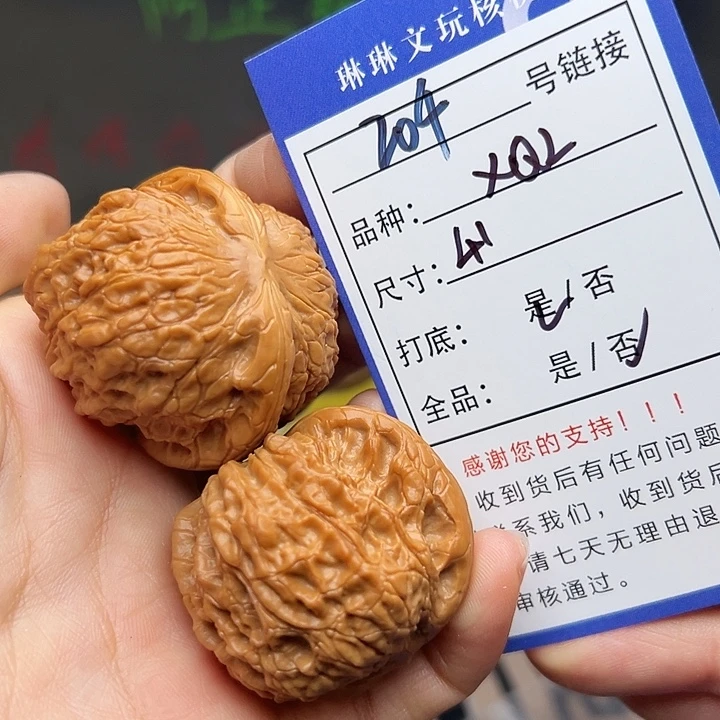 琳琳文玩核
204号链接
品种：XQL
尺寸：41
打底： 是/否
全品： 是/否
感谢您的支持！！！
收到货后有任何问题
系我们，收到货后
请七天无理由退
审核通过。